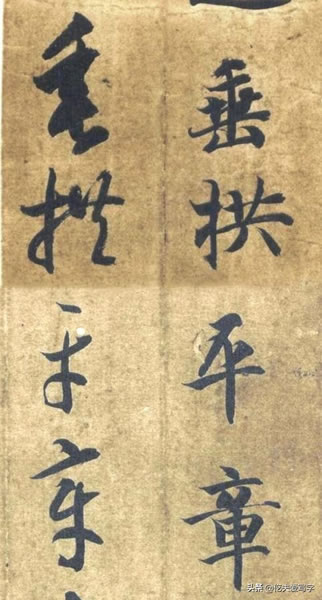 垂拱平章
垂拱平章
头条 @忆夫爱写字